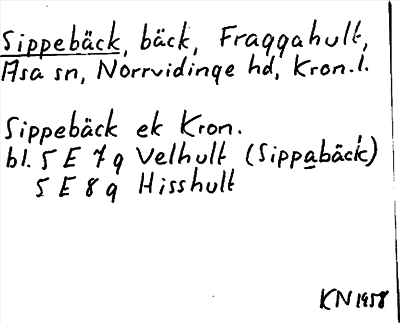 Sippebäck, bäck, Fraggahult,
Asa sn, Norrvidinge hd, Kron.l.
Sippebäck ek Kron.
bl. 5 E 7 g Velhult (Sippabäck)
5 E 8 g Hisshult
KN 1958